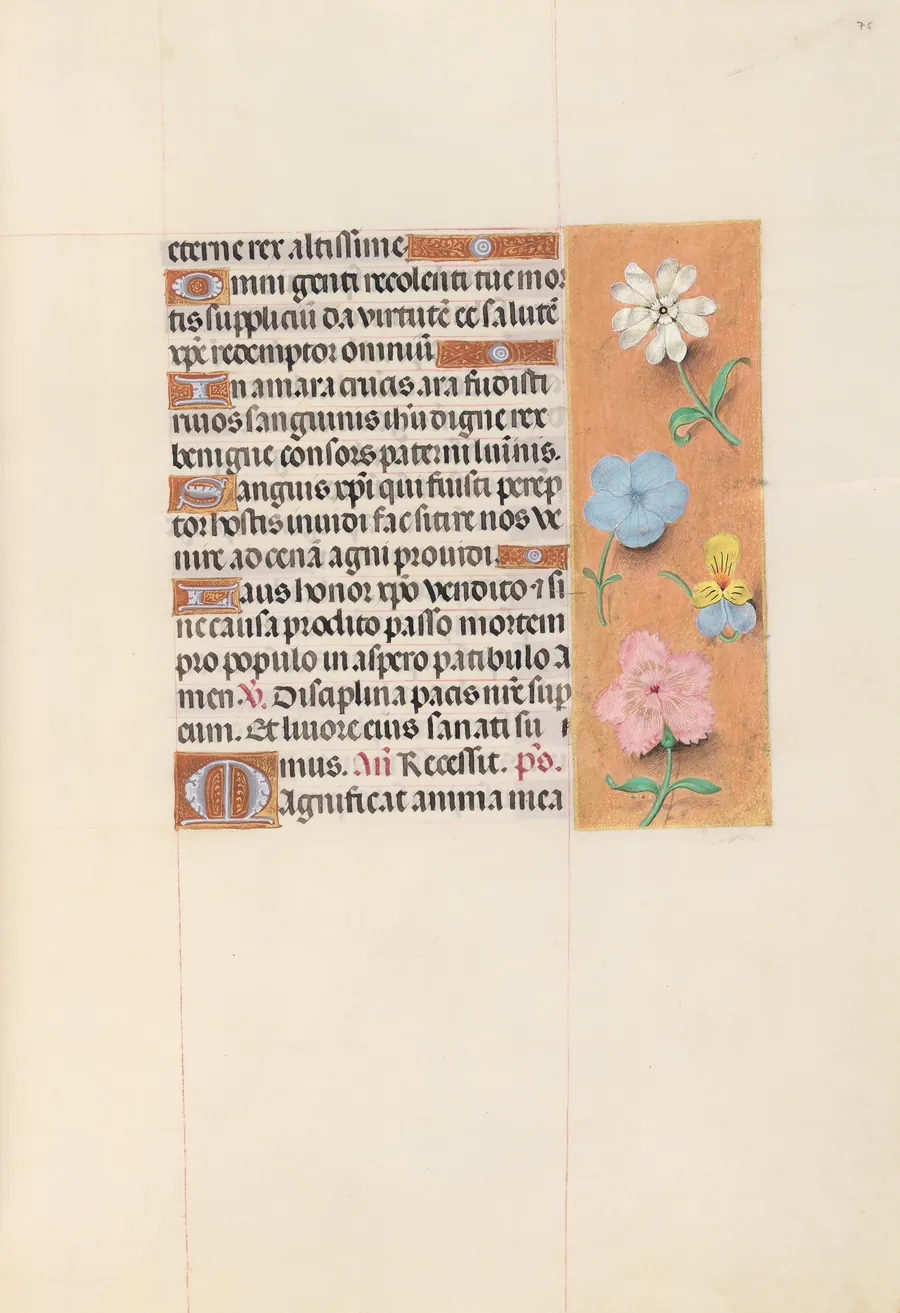 75
eterne rex altissime
Omni genti recolenti tue mor
tis suppliciū da virtutē et salutē
xpē redemptor omniū
In amara crucis ara fudisti
rivos sanguinis ihū digne rex
benigne consors paterni luīnis.
Sanguis xpī qui fuisti perēp
tor hostis invidi fac sitire nos ve
nire ad cenā agni providi.
Laus honor xpō vendito ⁊ si
ne causa prodito passo mortem
pro populo in aspero patibulo A
men ℣. Disciplina pacis nrē sup
eum. Et livore eius sanati su
mus. Añ Recessit. ps̄.
Magnificat anima mea